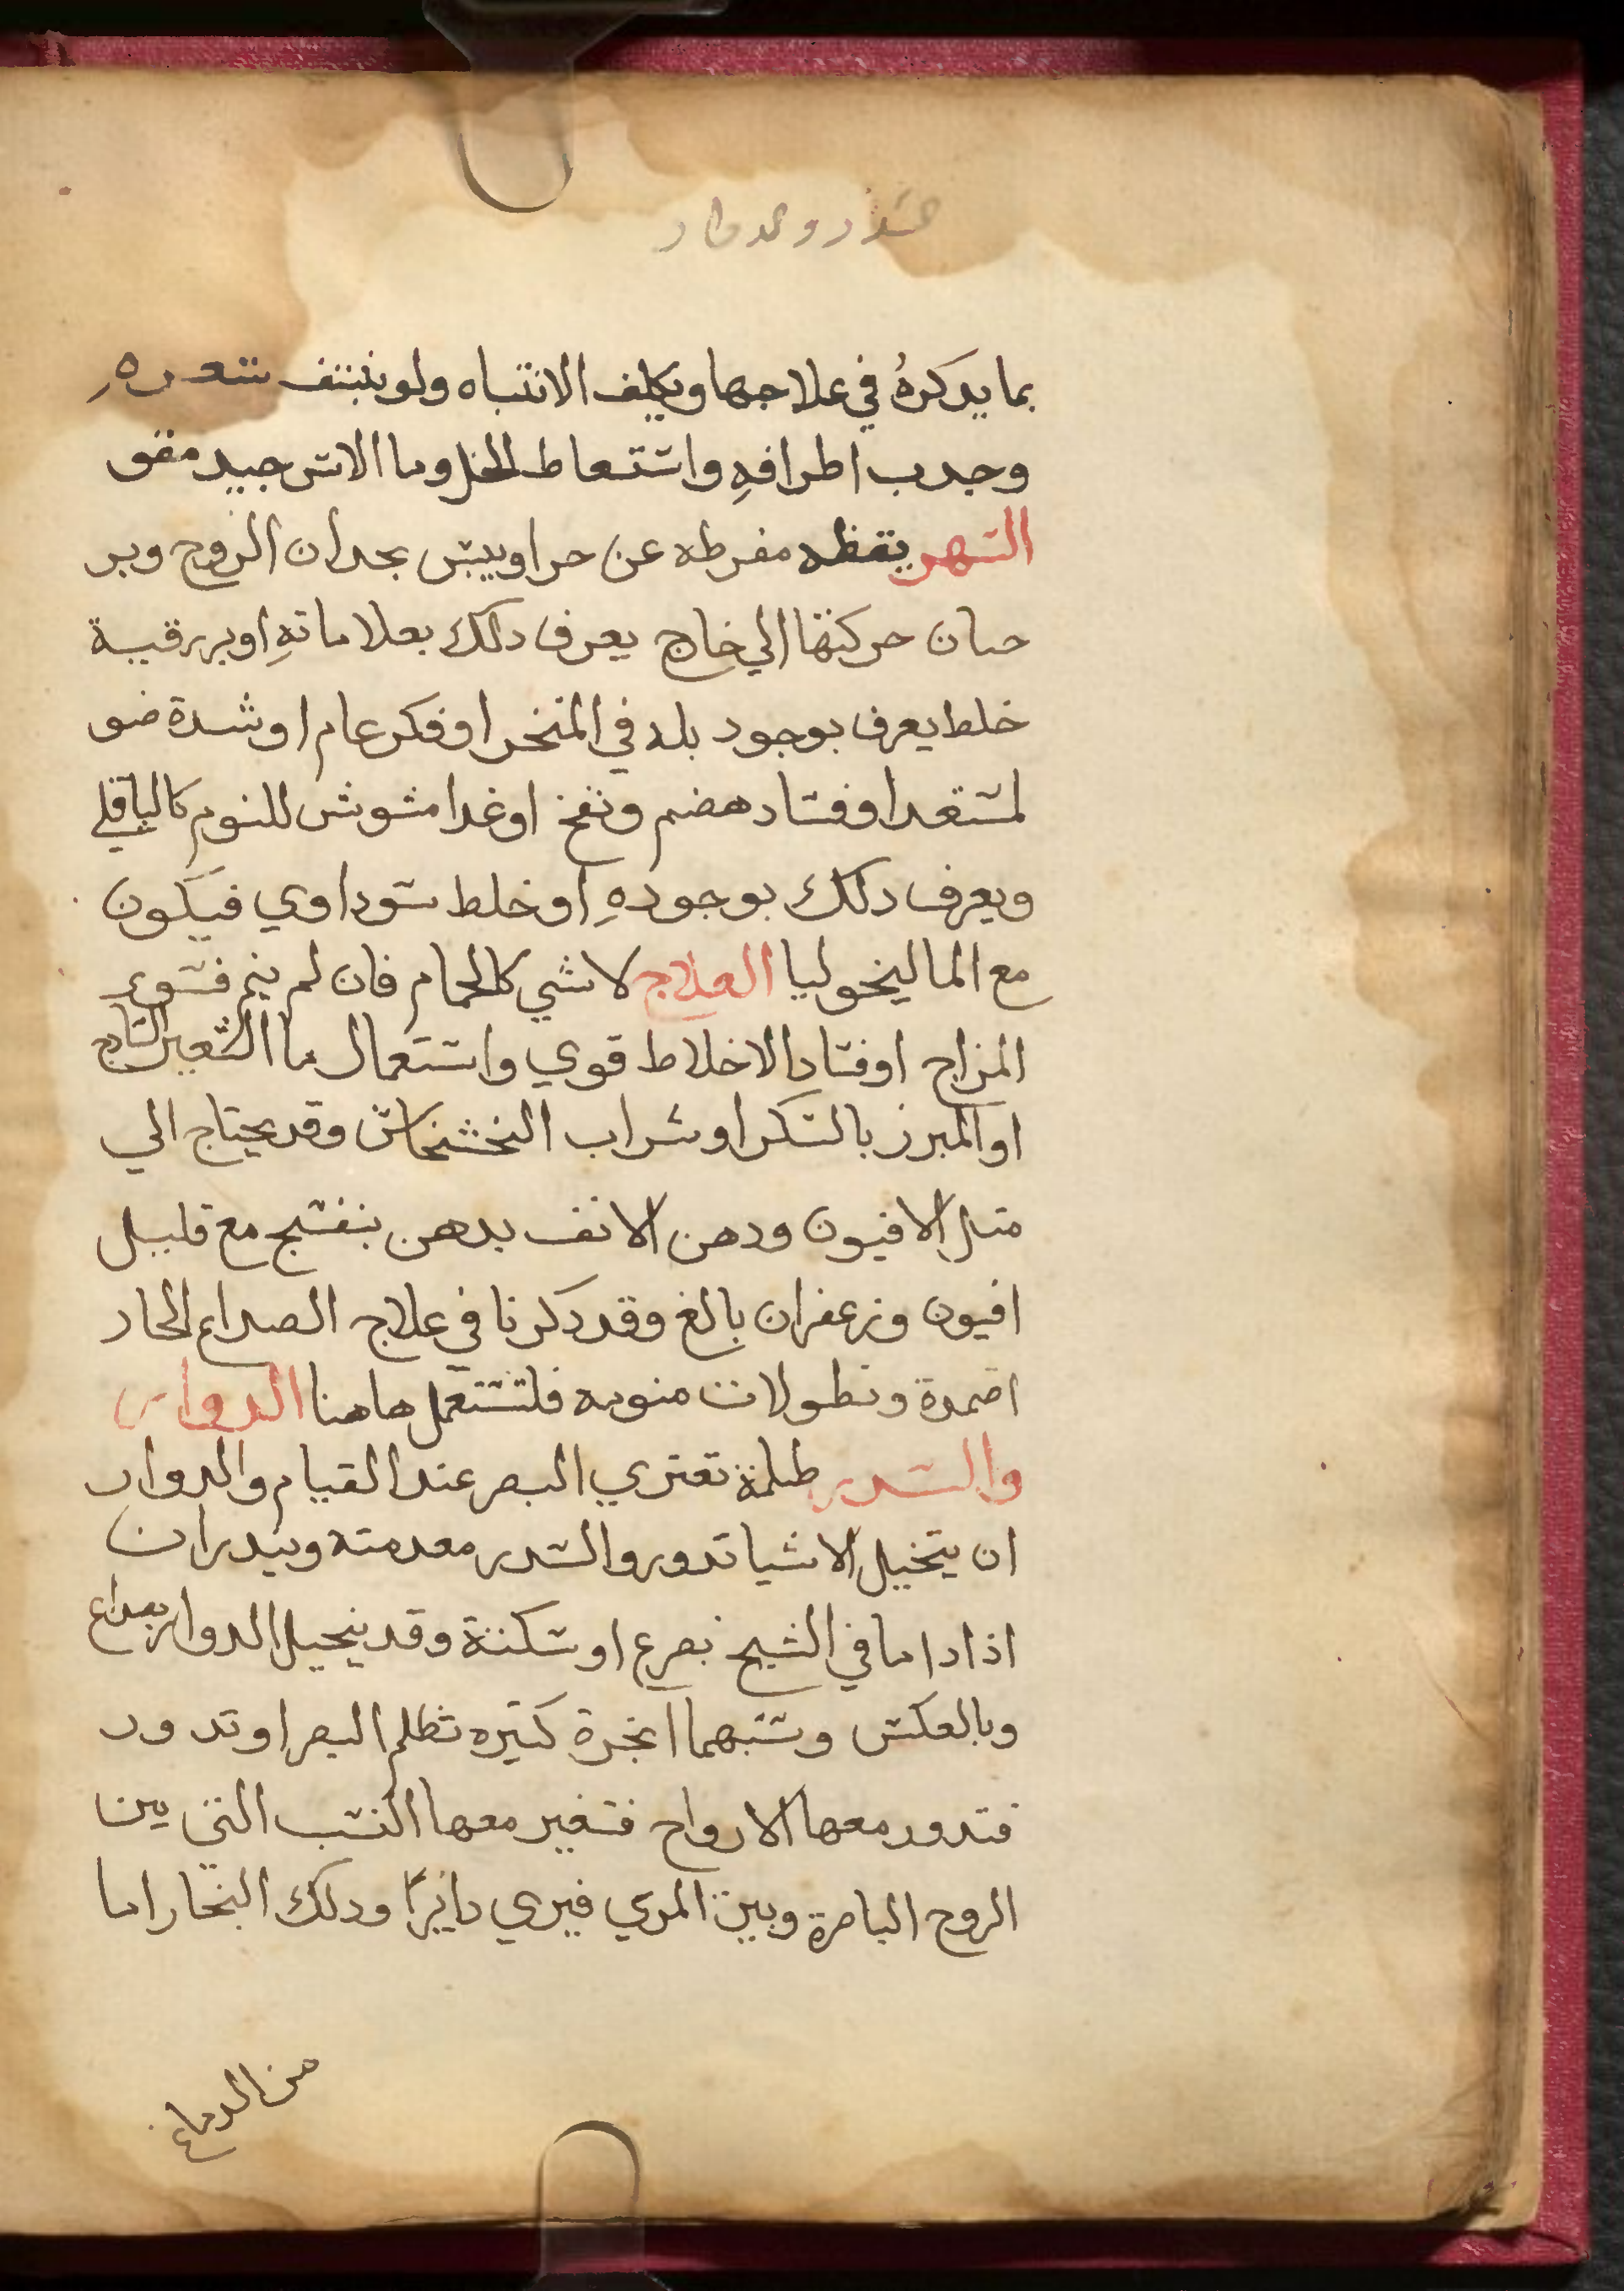 بما يدكرهُ في علاجها ويكلف الانتباه ولو بنتف شعره
وجدب اطرافهِ واستعاط الخل وما الاس جيد مقو
السهر يقظه مفرطه عن حر او يبس يحدان الروح وير
حيان حركتها الي خاج يعرف دلك بعلاماتهِ او بورقية
خلط يعرف بوجود بله في المنخر او فكر عام او شدة ضو
لمستعد او فساد هضم ونفخ او غدا مشوش للنوم كالباقلي
ويعرف دلك بوجودهِ او خلط سوداوي فيكون
مع الماليخوليا العلاج لا شي كالحمام فان لم ينم فسوء
المزاج او فساد الاخلاط قوي واستعمال ما الشعير السادج
او المبرز بالسكر او شراب الخشخاش وقد يحتاج الي
متل الافيون ودهن الانف بدهن بنفسج مع قليل
افيون وزعفران بالغ وقد دكرنا في علاج الصداع الحار
اضمدة ونطولات منومه فلتستعمل هاهنا الدوار
والسدر ظلمة تعتري البصر عند القيام والدوار
ان يتخيل الاشيا تدور والسدر مقدمته ويندران
اذا داما في الشيخ بصرع او سكتة وقد ينحل الدوار بصداع
وبالعكس وسببهما ابخرة كتيره تظلم البصر او تدور
فتدور معها الارواح فتغير معها النسب التي بين
الروح الباصرة وبين المري فيري دايرًا ودلك البخار اما
من الدماغ